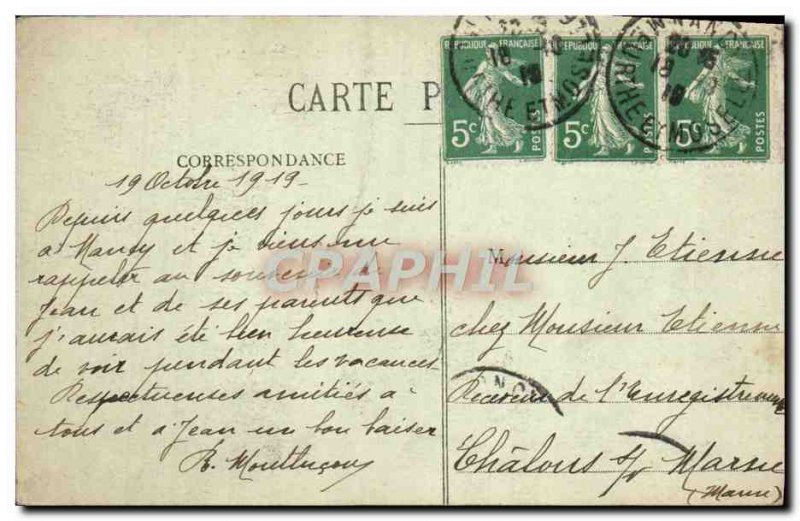 CARTE P
CORRESPONDANCE
19 Octobre 1919
Depuis quelques jours je suis
à Nancy et je viens me
rappeler au souvenir de
Jean et de ses parents que
j'aurais été bien heureuse
de voir pendant les vacances
Respectueuses amitiés à
tous et à Jean un bon baiser
R.
REPUBLIQUE FRANÇAISE
5c
POSTES
REPUBLIQUE FRANÇAISE
5c
REPUBLIQUE FRANÇAISE
5c
POSTES
NANCY
MRTHE ET MOSELLE
Monsieur J. Etienne
chez Monsieur Etienne
Receveur de l'Enregistrement
Châlons s/ Marne
(Marne)
CPAPHIL